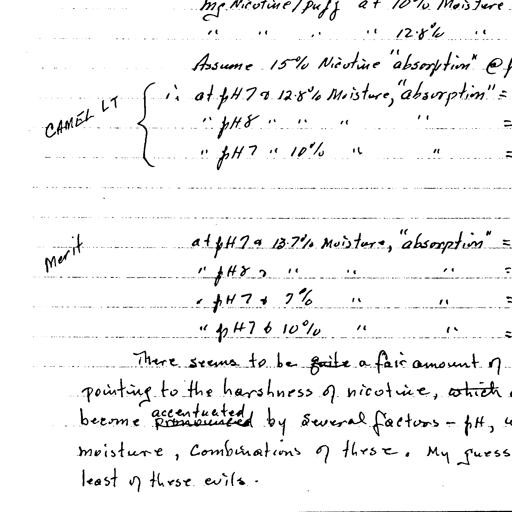 mg Nicotine/puff at 10% Moisture
" " " " 12.8% "
Assume 15% Nicotine "absorption" @ p
CAMEL LT
∴ at pH 7 & 12.8% Moisture, "absorption" =
" pH 8 " " " " =
" pH 7 " 10% " " =
Merit
at pH 7 & 13.7% Moisture, "absorption" =
" pH 8 " " " =
" pH 7 & 7% " " =
" pH 7 & 10% " " =
There seems to be quite a fair amount of
pointing to the harshness of nicotine, which
accentuated
become pronounced by several factors - pH,
moisture, combinations of these. My guess
least of these evils.